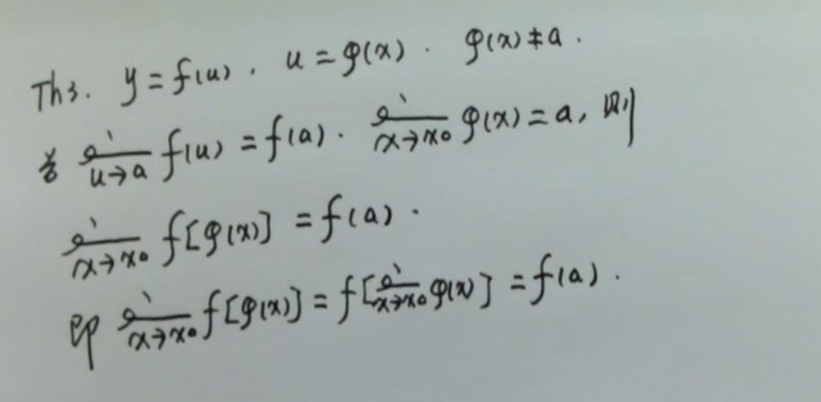 Th3. y = f(u), u = φ(x). φ(x) ≠ a.
若 lim_{u→a} f(u) = f(a). lim_{x→x₀} φ(x) = a, 则
lim_{x→x₀} f[φ(x)] = f(a).
即 lim_{x→x₀} f[φ(x)] = f[lim_{x→x₀} φ(x)] = f(a).